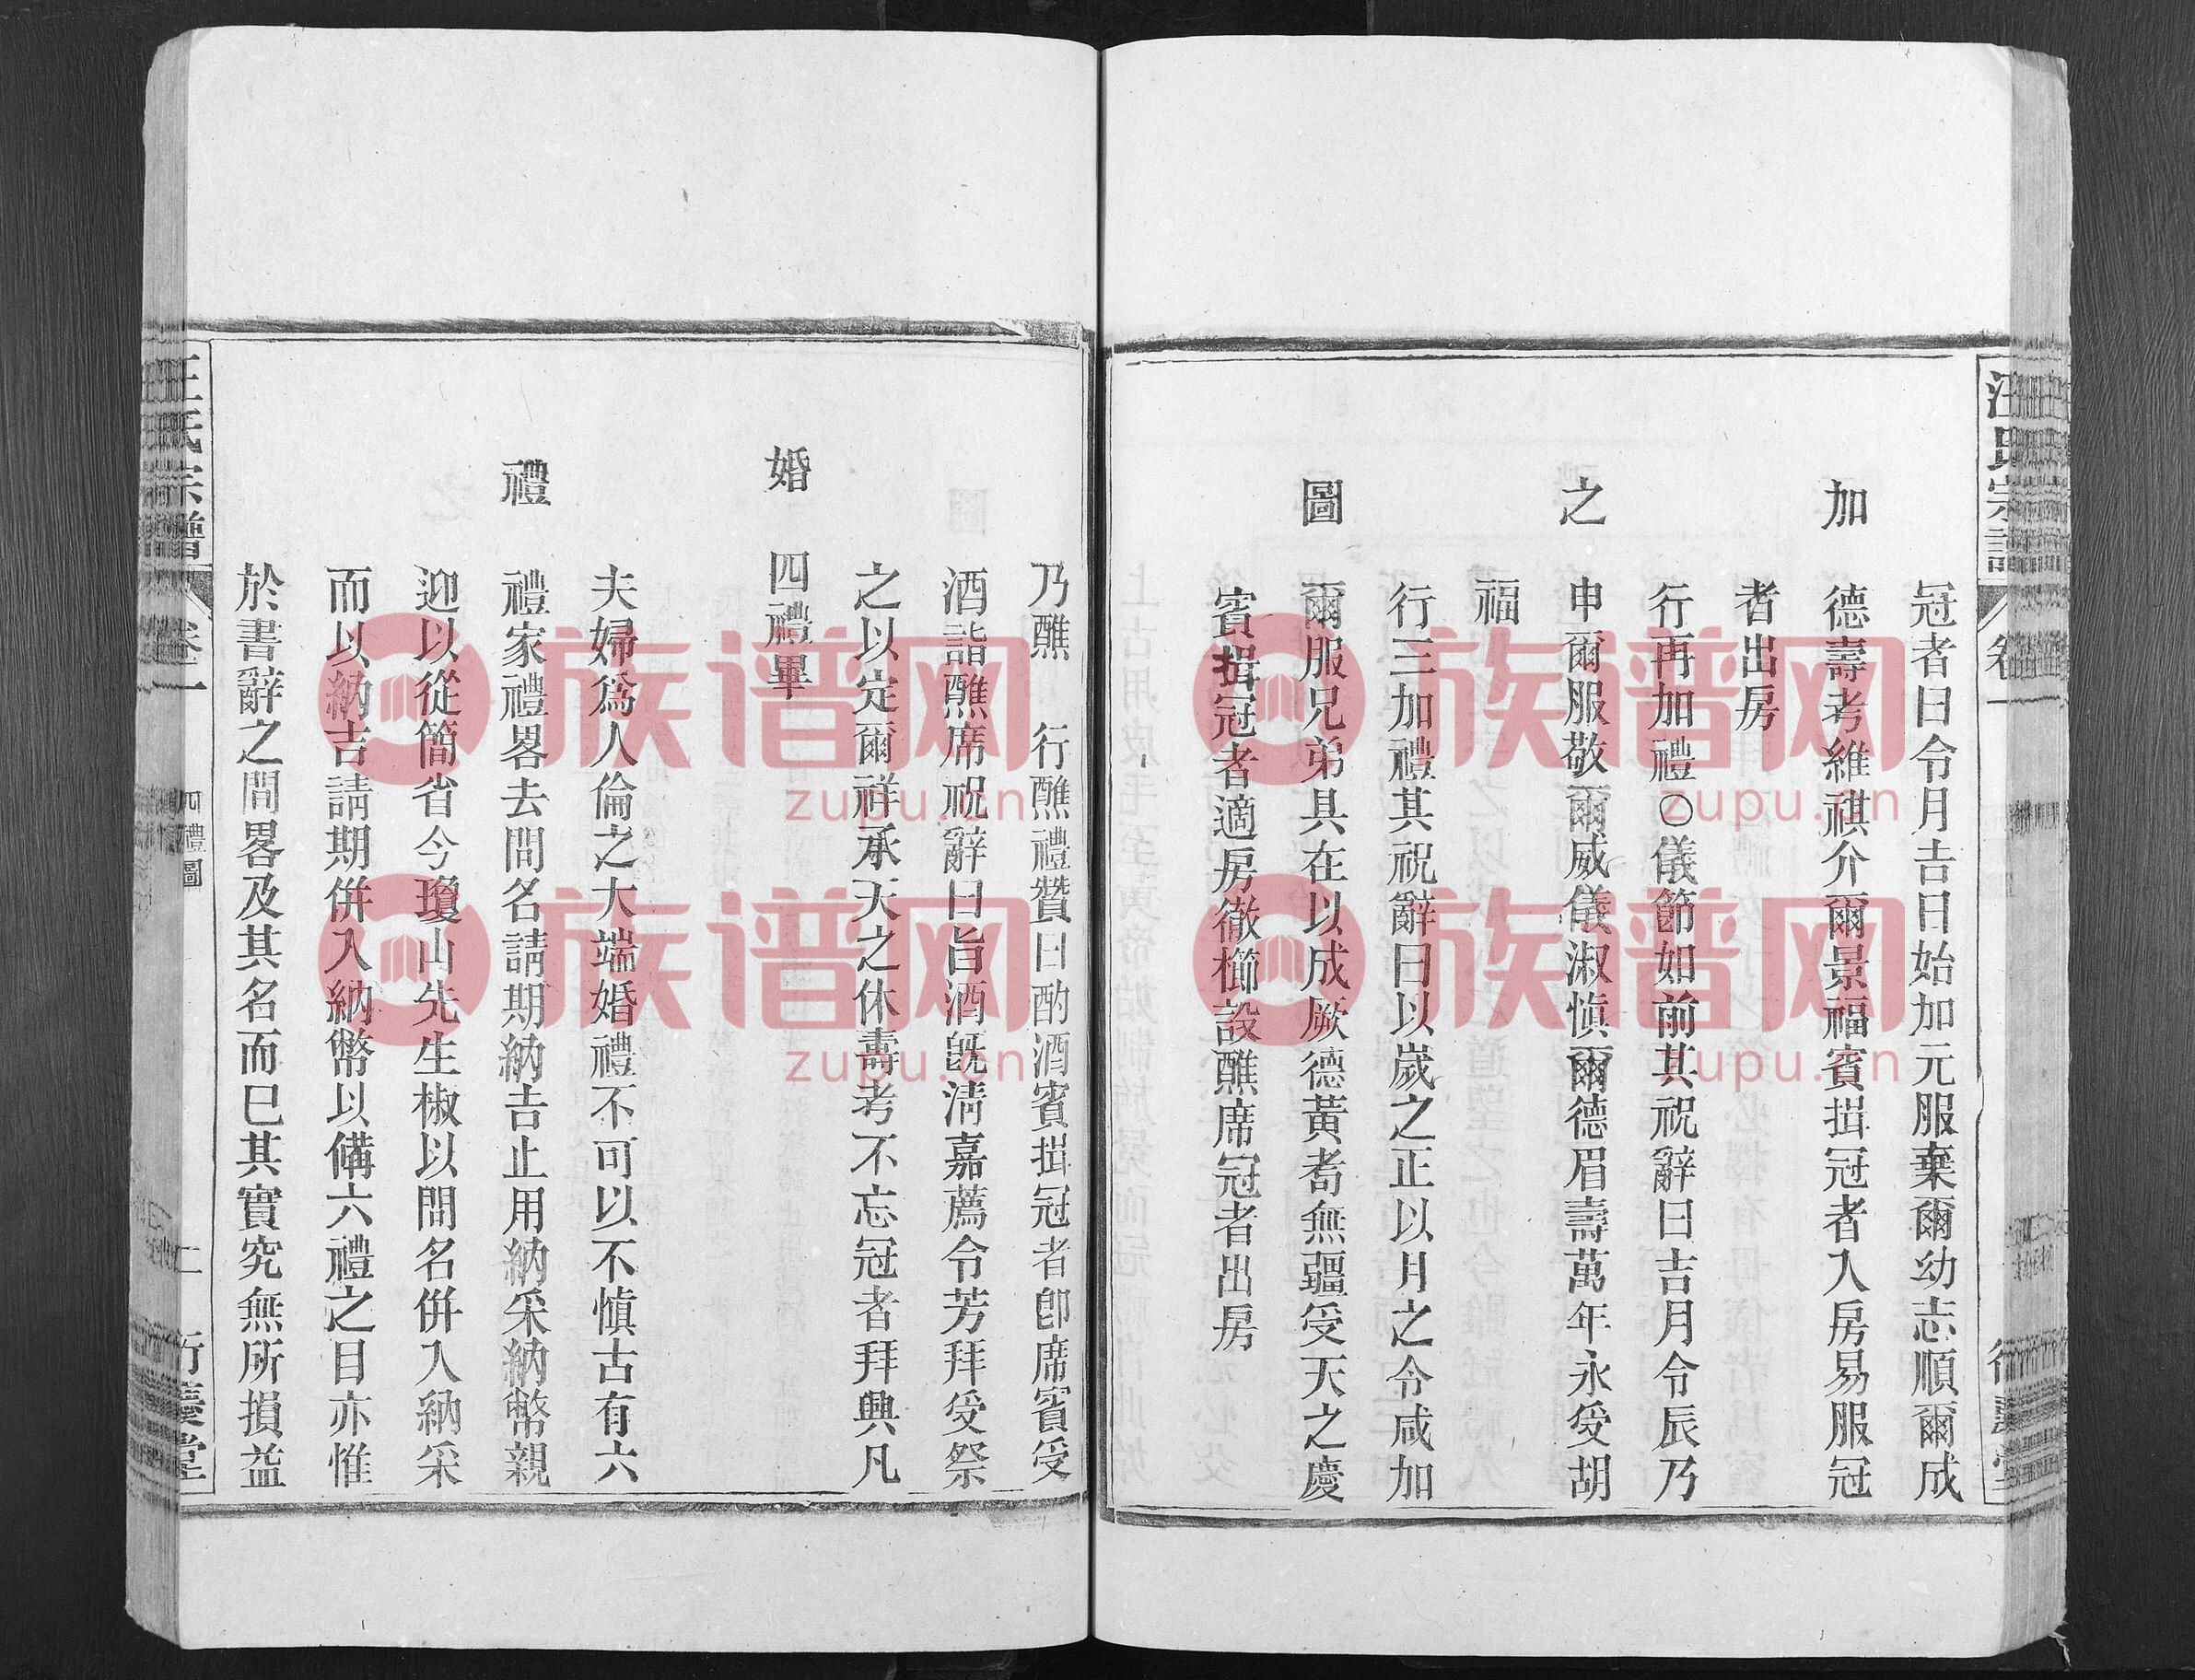 汪氏宗譜 卷一
冠者曰令月吉日始加元服棄爾幼志順爾成
加 德壽考維祺介爾景福賓揖冠者入房易服冠
者出房
行再加禮○儀節如前其祝辭曰吉月令辰乃
之 申爾服敬爾威儀淑慎爾德眉壽萬年永受胡
福
行三加禮其祝辭曰以歲之正以月之令咸加
圖 爾服兄弟具在以成厥德黃耇無疆受天之慶
賓揖冠者適房徹櫛設醮席冠者出房
乃醮 行醮禮贊曰酌酒賓揖冠者卽席賓受
酒詣醮席祝辭曰旨酒旣淸嘉薦令芳拜受祭
之以定爾祥承天之休壽考不忘冠者拜興凡
婚 四禮畢
夫婦爲人倫之大端婚禮不可以不慎古有六
禮 禮家禮畧去問名請期納吉止用納采納幣親
迎以從簡省今瓊山先生椒以問名併入納采
而以納吉請期併入納幣以備六禮之目亦惟
於書辭之間畧及其名而已其實究無所損益
汪氏宗譜 卷一 四禮圖 二
族谱网
zupu.cn
族谱网
zupu.cn
族谱网
zupu.cn
族谱网
zupu.cn